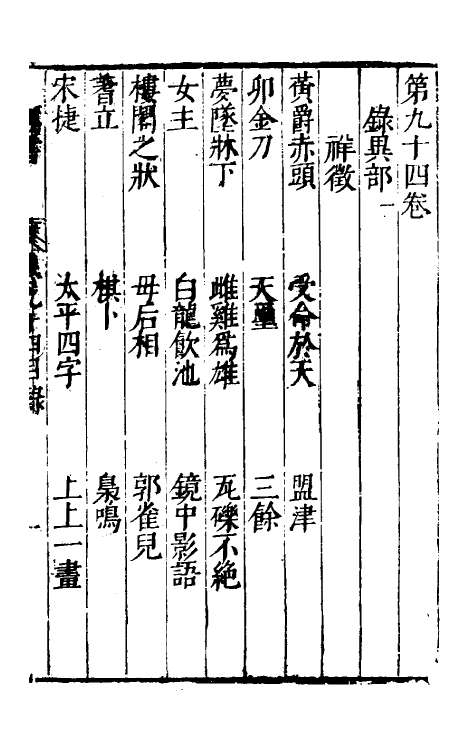 第九十四卷
錄異部一
祥徵
黃爵赤頭 受命於天 盟津
卯金刀 天璽 三餘
夢墜牀下 雌雞為雄 瓦礫不絕
女主 白龍飲池 鏡中影語
樓閣之狀 毋后相 郭雀兒
蓍立 棋卜 梟鳴
宋捷 太平四字 上上一畫